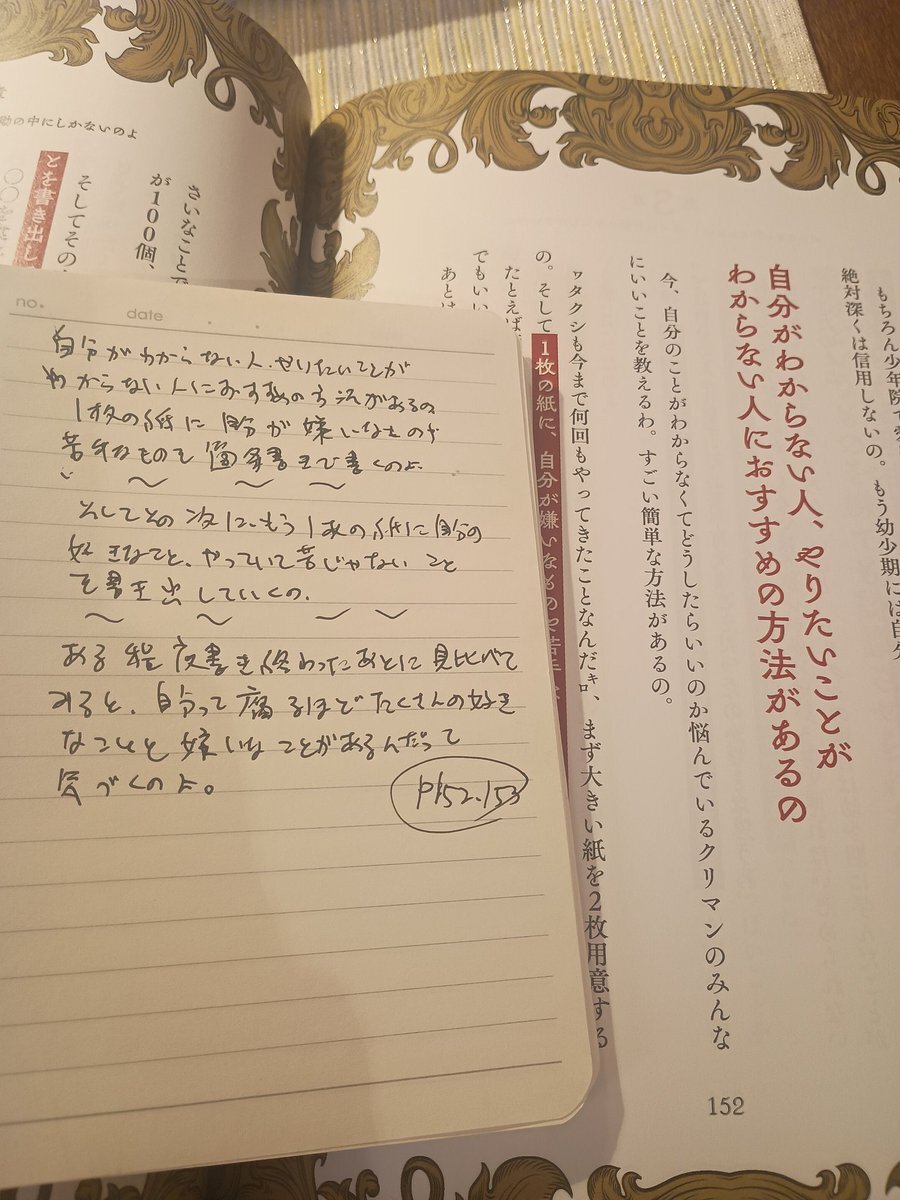 もちろん少年院で
絶対深くは信用しないの。もう幼少期には自
自分がわからない人、やりたいことが
わからない人におすすめの方法があるの
今、自分のことがわからなくてどうしたらいいのか悩んでいるクリマンのみんな
にいいことを教えるわ。すごい簡単な方法があるの。
ワタクシも今まで何回もやってきたことなんだョロ、まず大きい紙を2枚用意する
の。そして1枚の紙に、自分が嫌いなものや苦手
たとえば、
でもいい
あとは
152
動の中にしかないのよ
さいなことで
が100個、
そしてその
とを書き出し
no.
date
自分がわからない人、やりたいことが
わからない人におすすめの方法があるの
1枚の紙に自分が嫌いなものや
苦手なものを箇条書きで書くのよ
そしてその次に、もう1枚の紙に自分の
好きなこと、やっていて苦じゃないこと
を書き出していくの。
ある程度書き終わったあとに見比べて
みると、自分って腐るほどたくさんの好き
なことと嫌いなことがあるんだって
気づくのよ。
P152.153